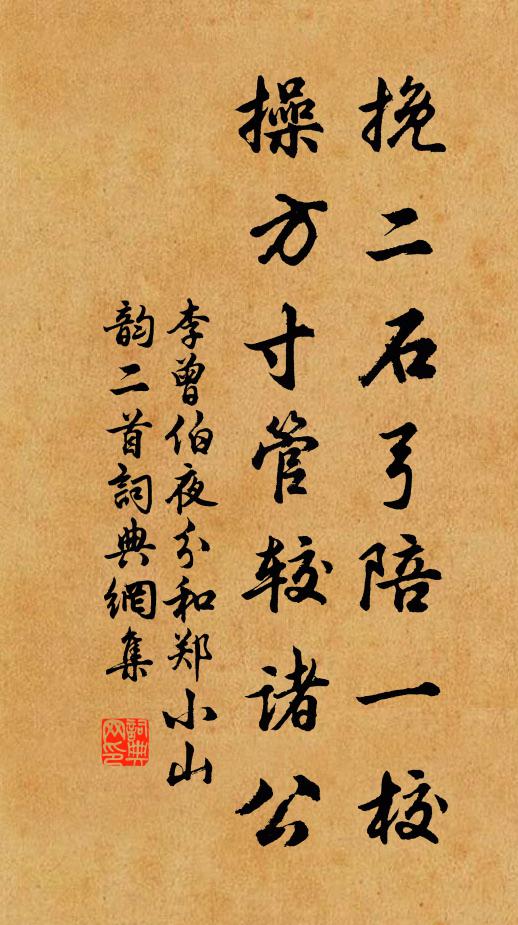 挽二石弓陪一校
操方寸管较诸公
李曾伯夜分和郑小山
韵二首詞典網集
詞典网印